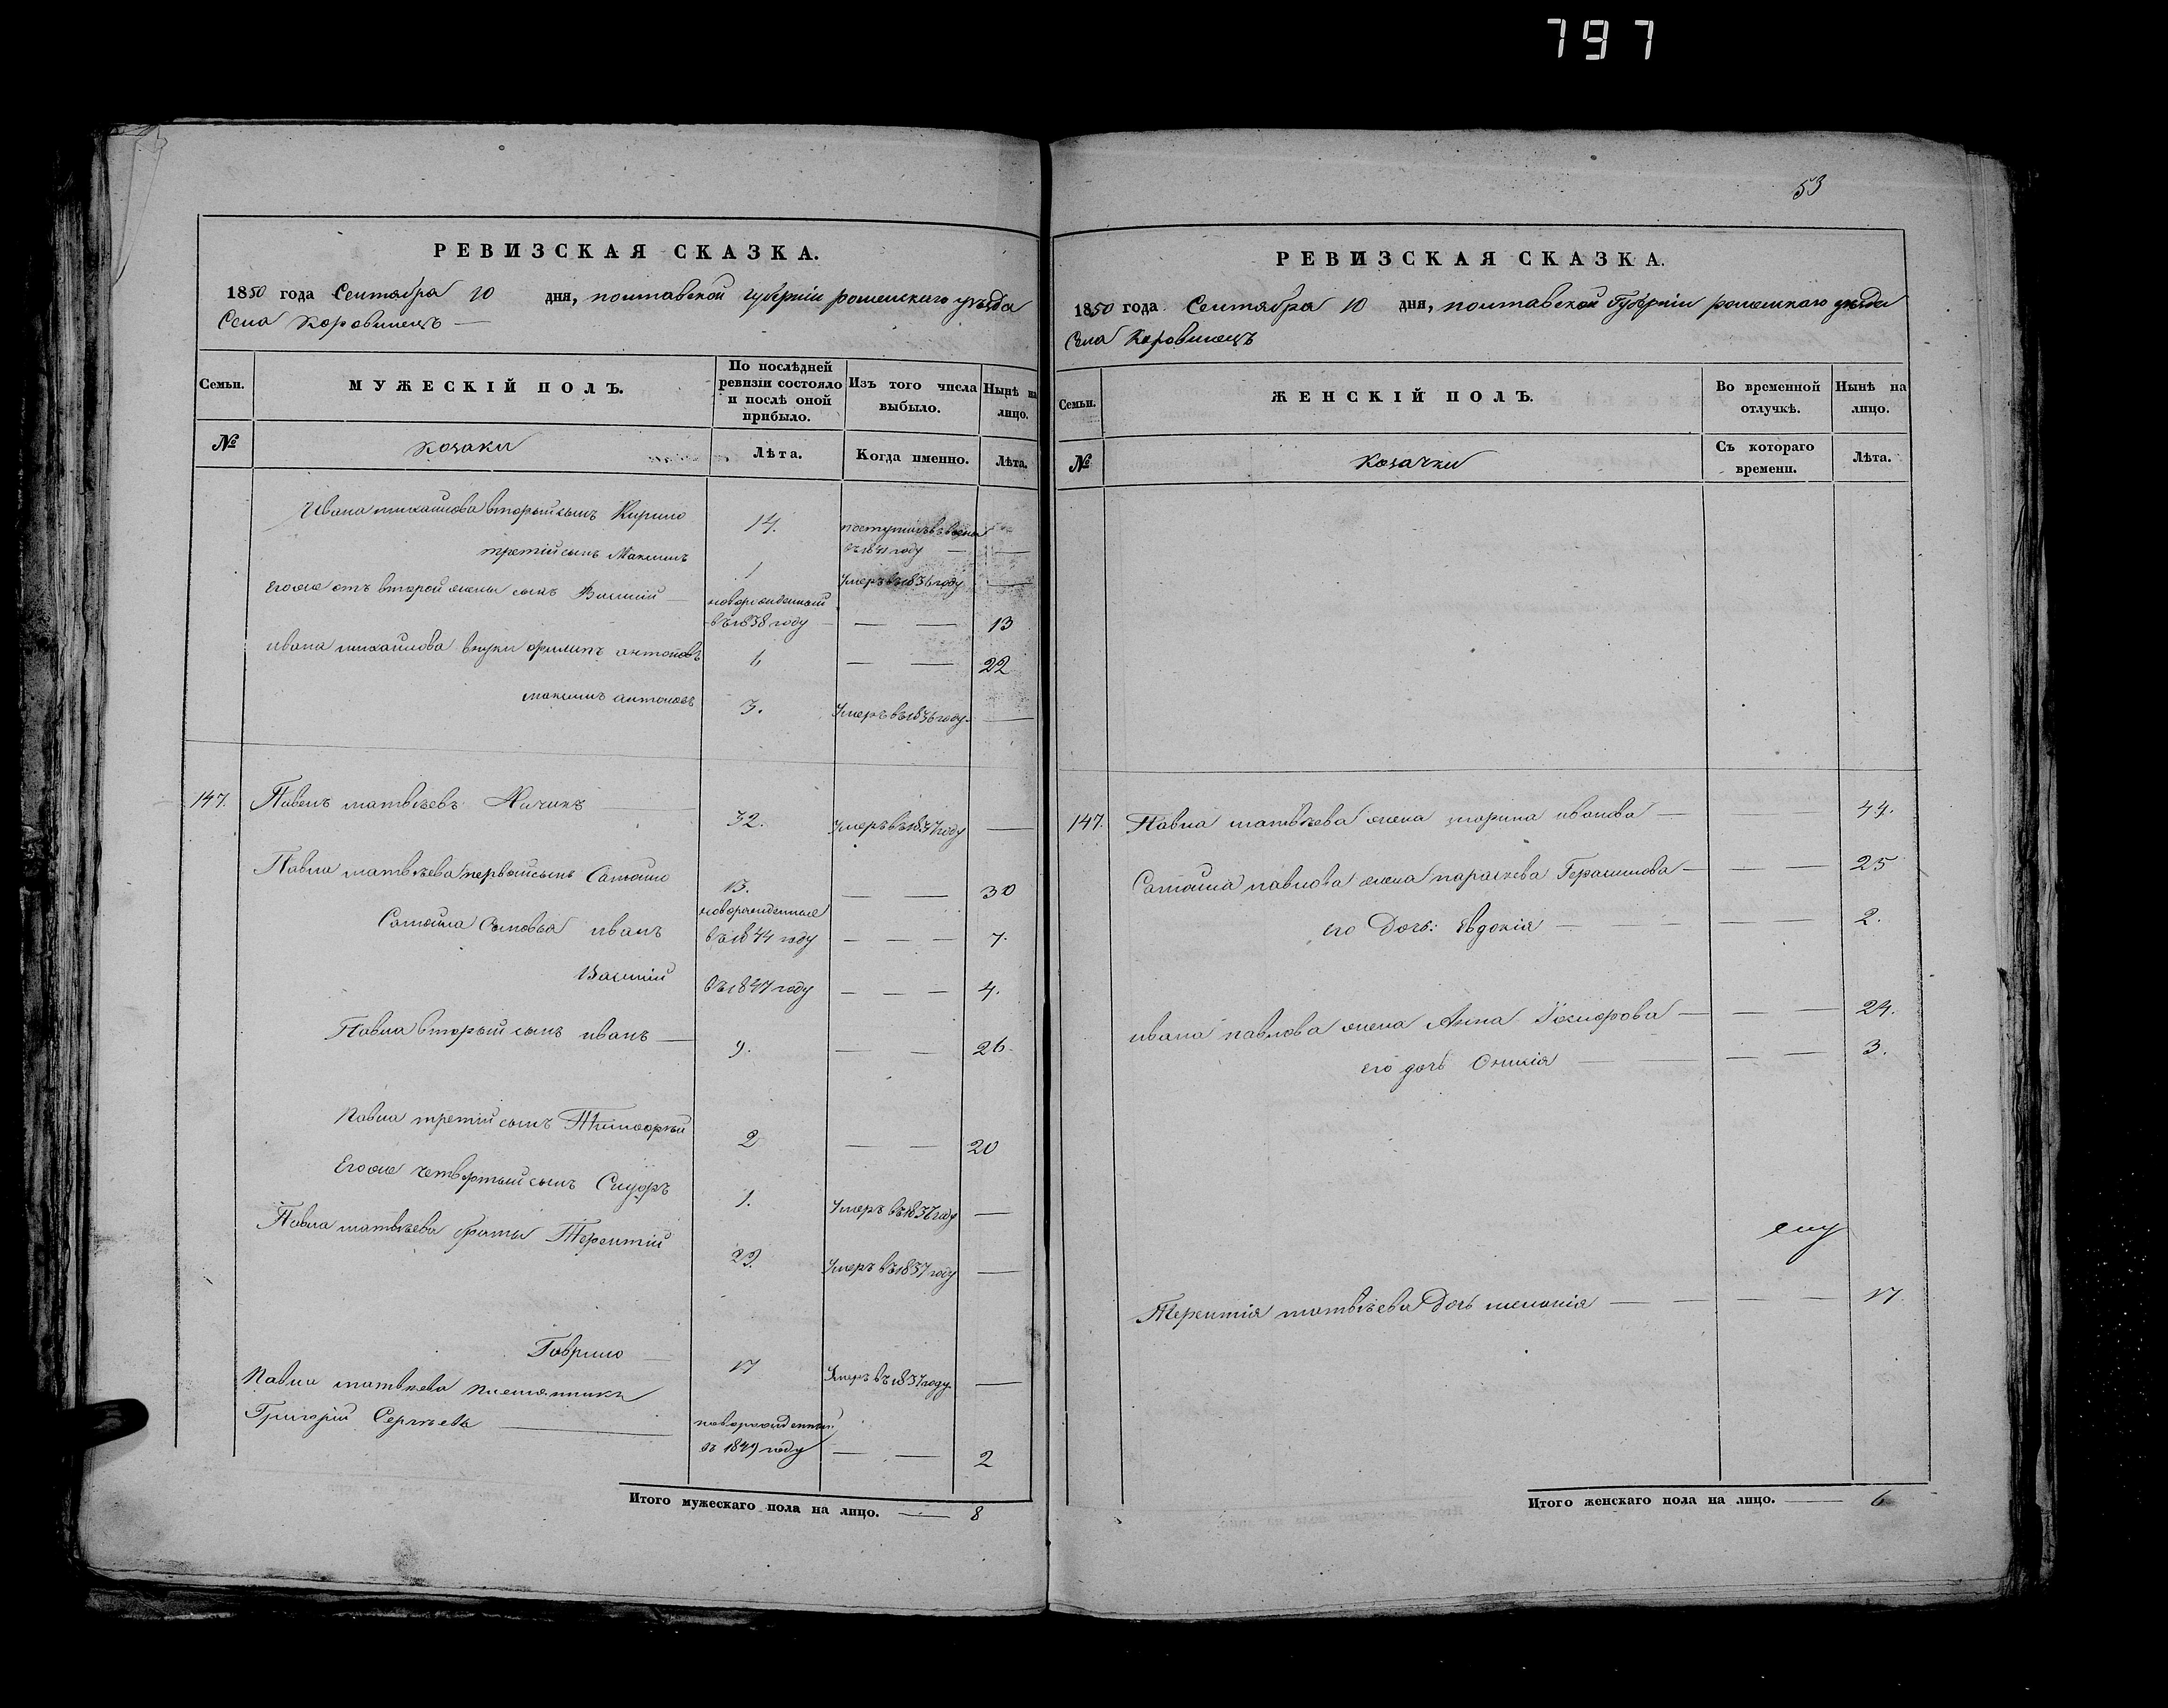 797
53
РЕВИЗСКАЯ СКАЗКА.
1850 года Сентября 10 дня, полтавской губерніи роменскаго уѣзда
Села Коровинецъ
Семьи.
МУЖЕСКІЙ ПОЛЪ.
По послѣдней ревизіи состояло и послѣ оной прибыло.
Изъ того числа выбыло.
Нынѣ на лицо.
№
козаки
Лѣта.
Когда именно.
Лѣта.
Ивана михайлова вторый сынъ Кирило 14. поступилъ въ
въ 1841 году —
третій сынъ Максимъ 1 Умеръ въ 1836 году —
Егоже отъ второй жены сынъ Василій — новорожденный
въ 1838 году — — 13
ивана михайлова внуки филипъ антоновъ 6 — — 22
максимъ антоновъ 3. Умеръ въ 1836 году. —
147. Павелъ матвѣевъ 32. Умеръ въ 1837 году —
Павла матвѣева первый сынъ Самойло 13. — — 30
новорожденные
Самойла Сыновья иванъ въ 1844 году — — — 7.
Василій въ 1847 году — — — 4.
Павла вторый сынъ иванъ — 9. — — 26
Павла третій сынъ Тимофѣй 2 — — 20
Егоже четвертый сынъ Сидоръ 1. Умеръ въ 1837 году —
Павла матвѣева браты Терентій 29. Умеръ въ 1837 году —
Гаврило — 17 Умеръ въ 1837 году. —
Павла матвѣева племянникъ
Григорій Сергѣевъ — новорожденный
въ 1849 году — — 2
Итого мужескаго пола на лицо. — 8
РЕВИЗСКАЯ СКАЗКА.
1850 года Сентября 10 дня, полтавской Губерніи роменскаго уѣзда
Села Коровинецъ
Семьи.
ЖЕНСКІЙ ПОЛЪ.
Во временной отлучкѣ.
Нынѣ на лицо.
№
Козачки
Съ котораго времени.
Лѣта.
147. Павла матвѣева жена марина иванова — — — 44.
Самойла павлова жена параскева Герасимова — — — 25
его Дочь: Евдокія — — — 2.
ивана павлова жена Анна — — — 24.
его дочь — — — 3.
Терентія матвѣева Дочь меланія — — — — 17.
Итого женскаго пола на лицо. — 6